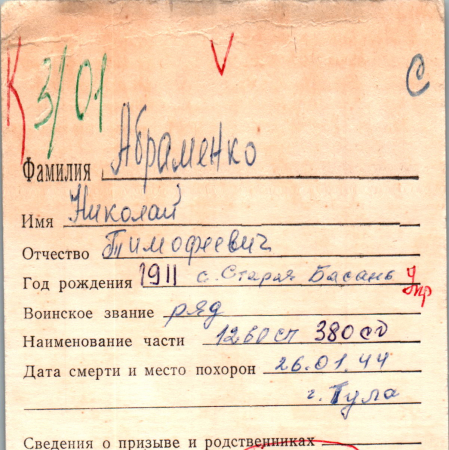 К 3/01 V С
Фамилия Абраменко
Имя Николай
Отчество Тимофеевич
Год рождения 1911 с. Старая Басань
Воинское звание ряд
Наименование части 1260сп 380сд
Дата смерти и место похорон 26.01.44
г. Тула
Сведения о призыве и родственниках